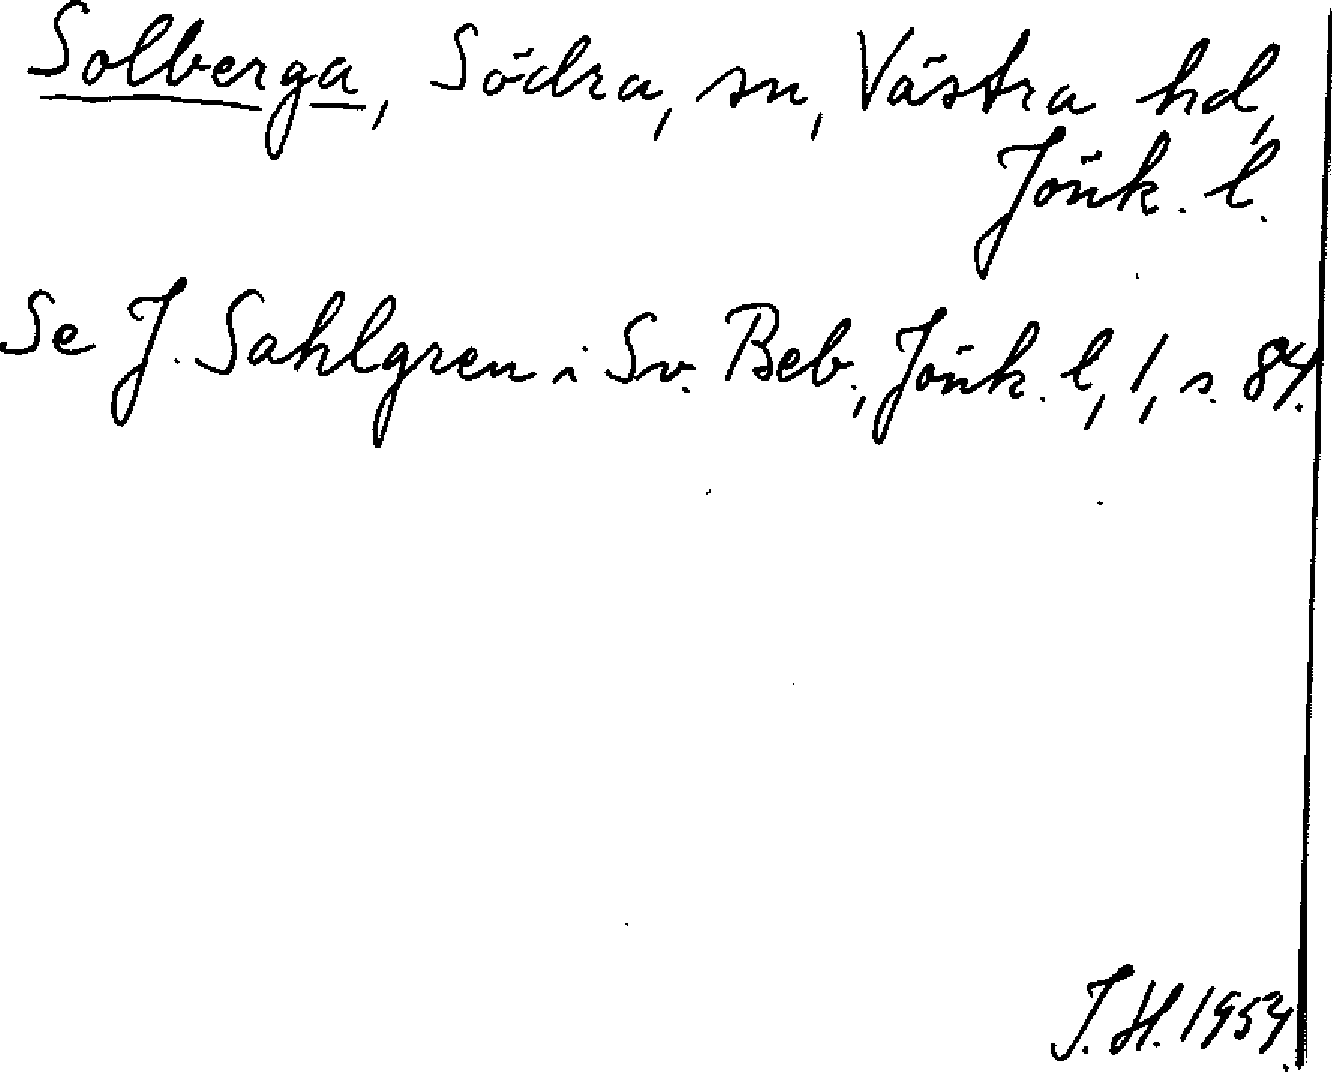 Solberga, Södra, sn, Västra hd,
Jönk. l.
Se J. Sahlgren i Sv. Beb., Jönk. l, 1, s. 84.
J.H. 1954.